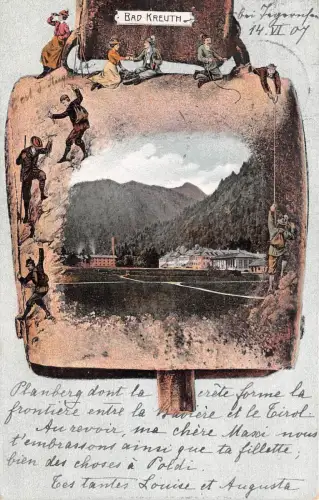 BAD KREUTH
bei Tegernsee
14. VI 07
Planberg dont la crête forme la
frontière entre la Bavière et le Tirol
Au revoir, ma chère Maxi nous
t'embrassons ainsi que ta fillette;
bien des choses à Poldi.
Tes tantes Louise et Augusta